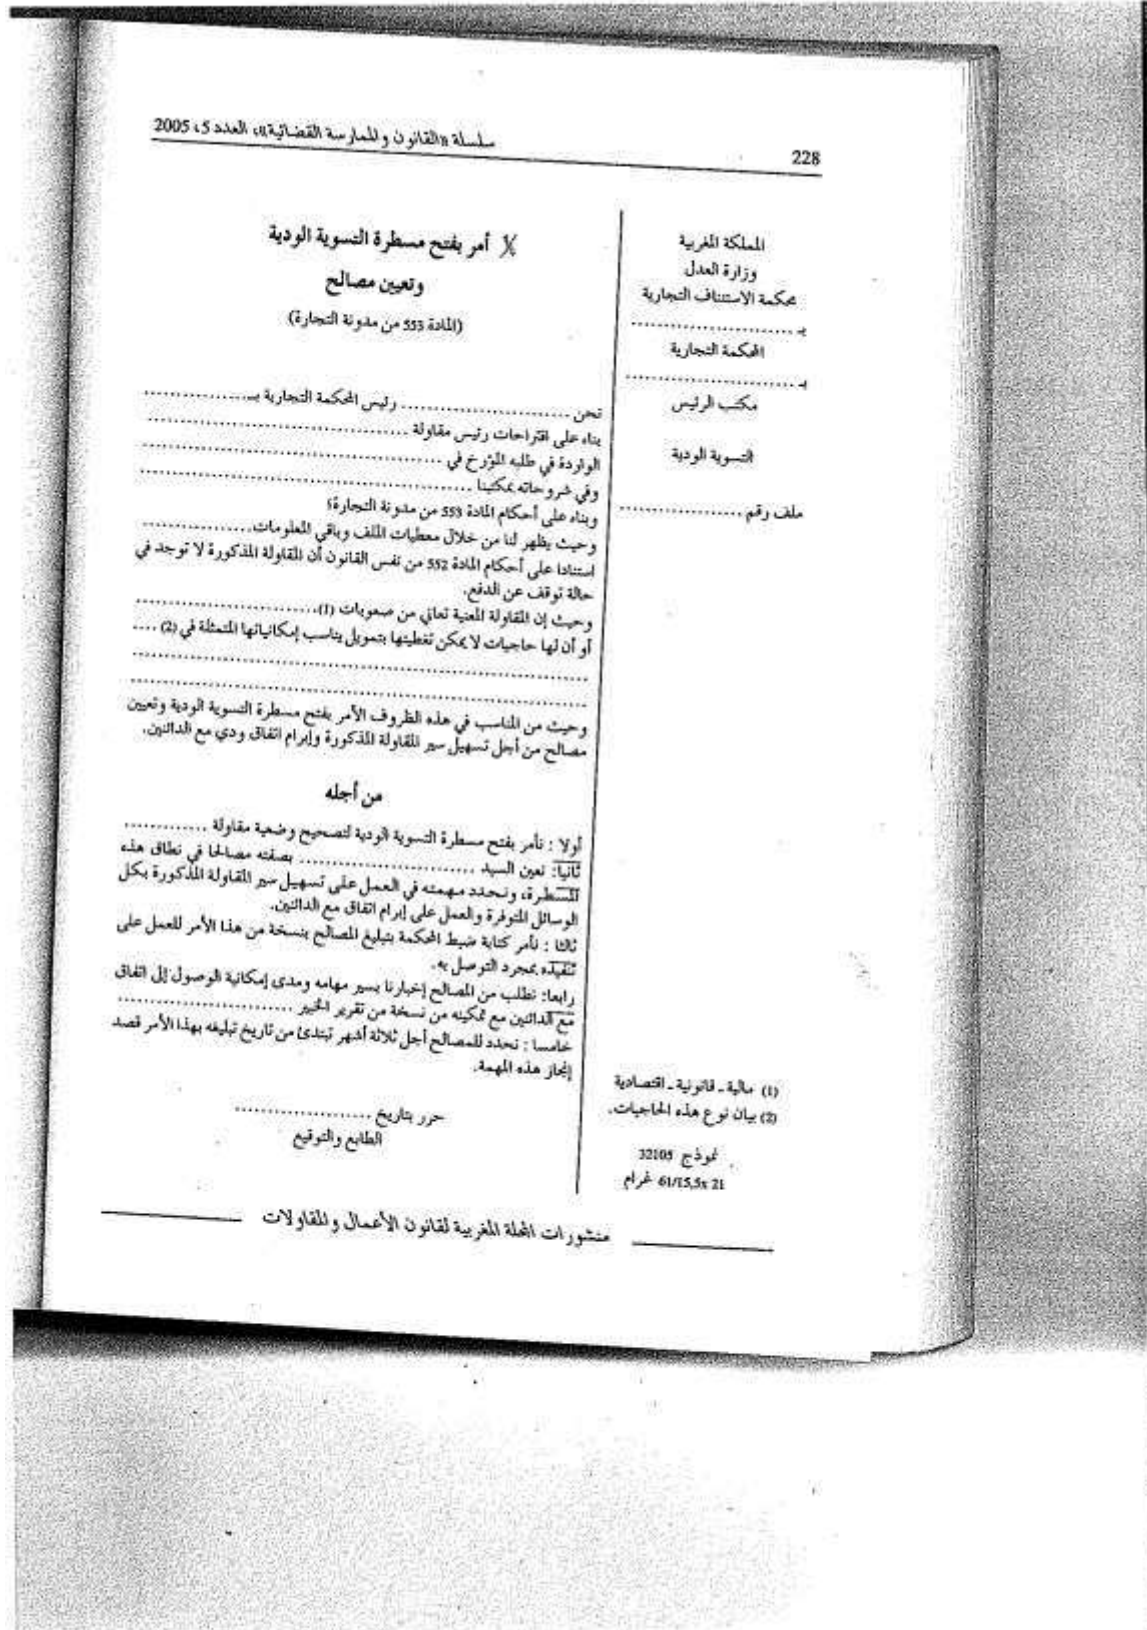 228
سلسلة «القانون والممارسة القضائية»، العدد 5، 2005
المملكة المغربية
وزارة العدل
محكمة الاستئناف التجارية
بـ ........................
المحكمة التجارية
بـ ........................
مكتب الرئيس
التسوية الودية
ملف رقم ..................
أمر بفتح مسطرة التسوية الودية
وتعيين مصالح
(المادة 553 من مدونة التجارة)
نحن ........................ رئيس المحكمة التجارية بـ ................
بناء على اقتراحات رئيس مقاولة ......................................
الواردة في طلبه المؤرخ في ...........................................
وفي شروحاته بمكتبنا ...............................................
وبناء على أحكام المادة 553 من مدونة التجارة؛
وحيث يظهر لنا من خلال معطيات الملف وباقي المعلومات................
استنادا على أحكام المادة 552 من نفس القانون أن المقاولة المذكورة لا توجد في
حالة توقف عن الدفع.
وحيث إن المقاولة المعنية تعاني من صعوبات (1)..........................
أو أن لها حاجيات لا يمكن تغطيتها بتمويل يناسب إمكانياتها المتمثلة في (2) ....
.................................................................
.................................................................
وحيث من المناسب في هذه الظروف الأمر بفتح مسطرة التسوية الودية وتعيين
مصالح من أجل تسهيل سير المقاولة المذكورة وإبرام اتفاق ودي مع الدائنين.
من أجله
أولا : نأمر بفتح مسطرة التسوية الودية لتصحيح وضعية مقاولة ............
ثانيا: نعين السيد ......................... بصفته مصالحا في نطاق هذه
المسطرة، ونحدد مهمته في العمل على تسهيل سير المقاولة المذكورة بكل
الوسائل المتوفرة والعمل على إبرام اتفاق مع الدائنين.
ثالثا : نأمر كتابة ضبط المحكمة بتبليغ المصالح بنسخة من هذا الأمر للعمل على
تنفيذه بمجرد التوصل به.
رابعا: نطلب من المصالح إخبارنا بسير مهامه ومدى إمكانية الوصول إلى اتفاق
مع الدائنين مع تمكينه من نسخة من تقرير الخبير .........................
خامسا : نحدد للمصالح أجل ثلاثة أشهر تبتدئ من تاريخ تبليغه بهذا الأمر قصد
إنجاز هذه المهمة.
حرر بتاريخ ....................
الطابع والتوقيع
(1) مالية ـ قانونية ـ اقتصادية
(2) بيان نوع هذه الحاجيات.
نموذج 32105
21 x 61/15,5 غرام
منشورات المجلة المغربية لقانون الأعمال والمقاولات